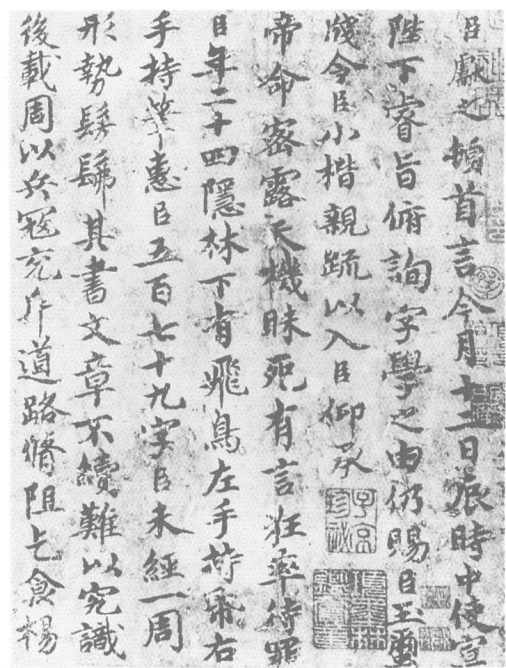 臣獻之頓首言今月十二日辰時中使宣
陛下睿旨俯詢字學之由仍賜臣玉璽
牋令臣小楷親疏以入臣仰承
帝命密露天機昧死有言狂率待罪
臣年二十四隱林下有飛鳥左手持帋右
手持筆惠臣五百七十九字臣未經一周
形勢髣髴其書文章不續難以究識
後載周以兵寇充斥道路脩阻乞食楊